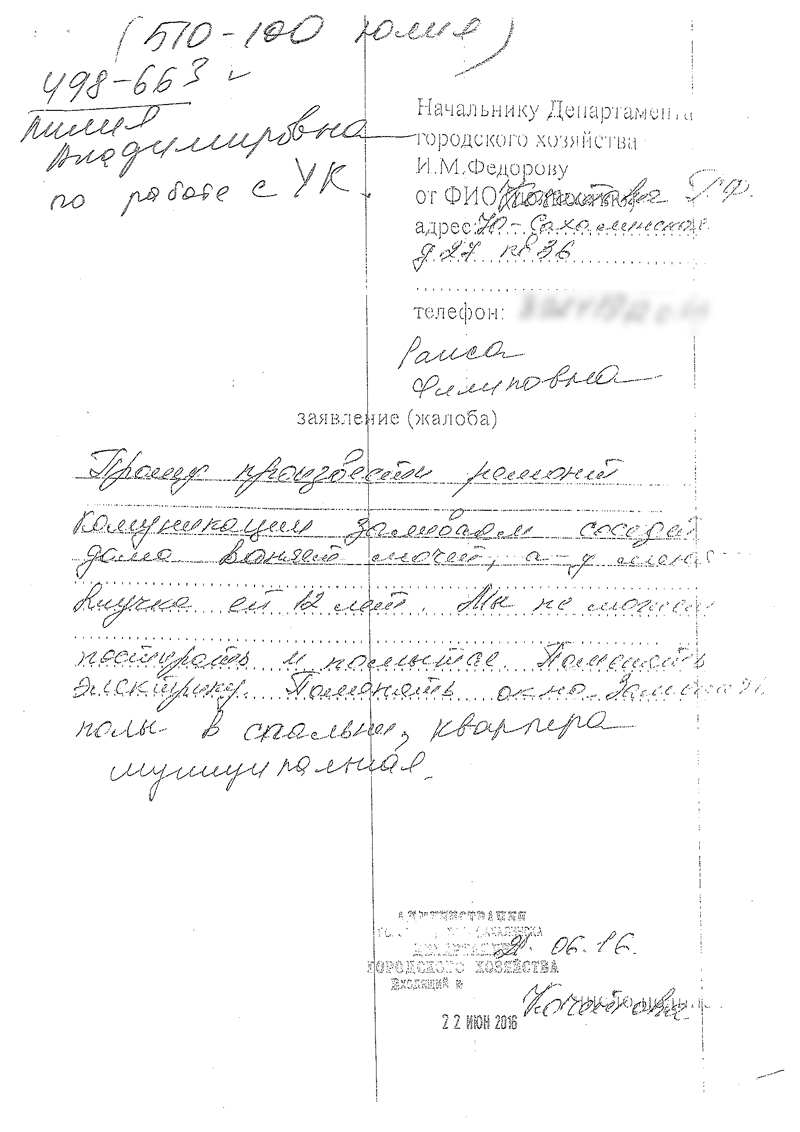 (510-100 Юлия)
498-663
Лилия
Владимировна
по работе с УК.
Начальнику Департамента
городского хозяйства
И.М.Федорову
от ФИО Р.Ф.
адрес: Ю-Сахалинская
д 27 кв 36
телефон:
Раиса
Филиповна
заявление (жалоба)
Прошу произвести ремонт
комуникации соседей
дома воняет мочей, а у меня
внучка ей 12 лет. Мы не можем
постирать и помытся. Поменять
электрику. Поменять окно.
полы в спальни, квартера
муниципалная.
АДМИНИСТРАЦИЯ
ЮЖНО-САХАЛИНСКА
ДЕПАРТАМЕНТ
ГОРОДСКОГО ХОЗЯЙСТВА
Входящий №
06.16.
22 ИЮН 2016